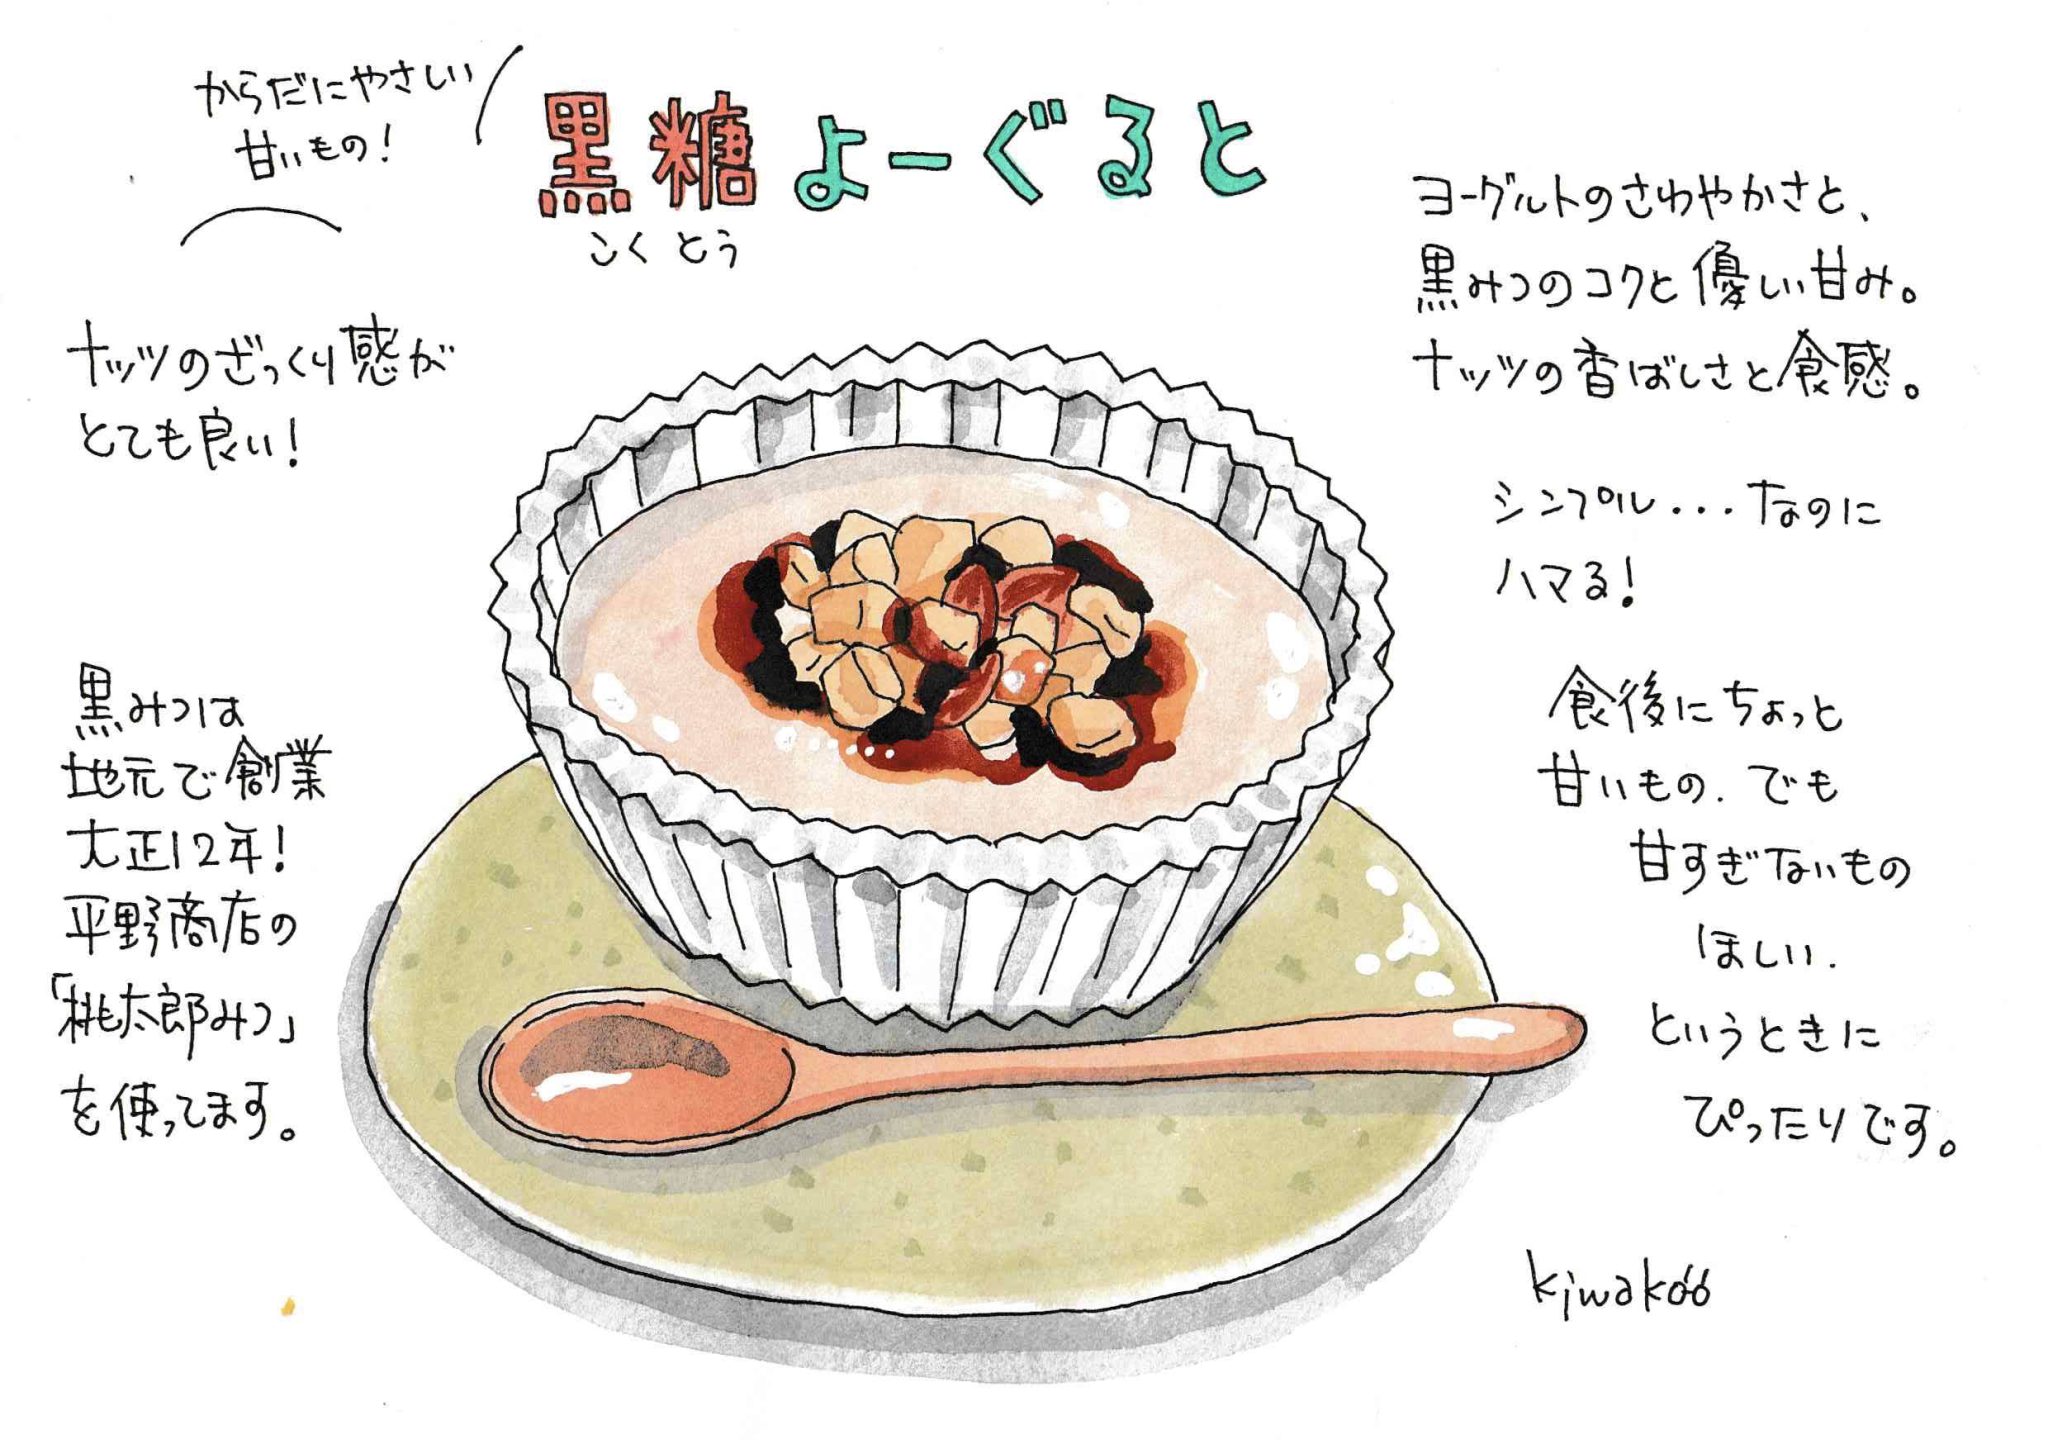 からだにやさしい
甘いもの!
黒糖よーぐると
こくとう
ナッツのざっくり感が
とても良い!
黒みつは
地元で創業
大正12年!
平野商店の
「桃太郎みつ」
を使ってます。
ヨーグルトのさわやかさと、
黒みつのコクと優しい甘み。
ナッツの香ばしさと食感。
シンプル...なのに
ハマる!
食後にちょっと
甘いもの.でも
甘すぎないもの
ほしい.
というときに
ぴったりです。
kiwakoo